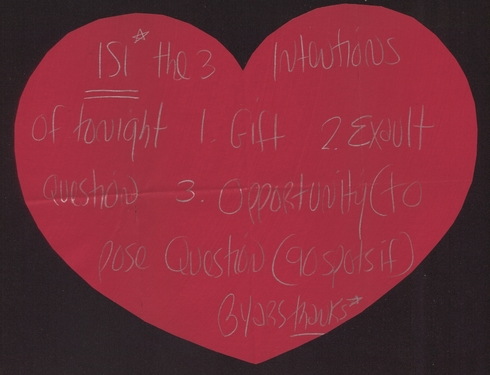 1S1* the 3 Intentions
of tonight 1. Gift 2. Exault
Question 3. Opportunity (to
pose Question (90 spots if)
Byars thanks*